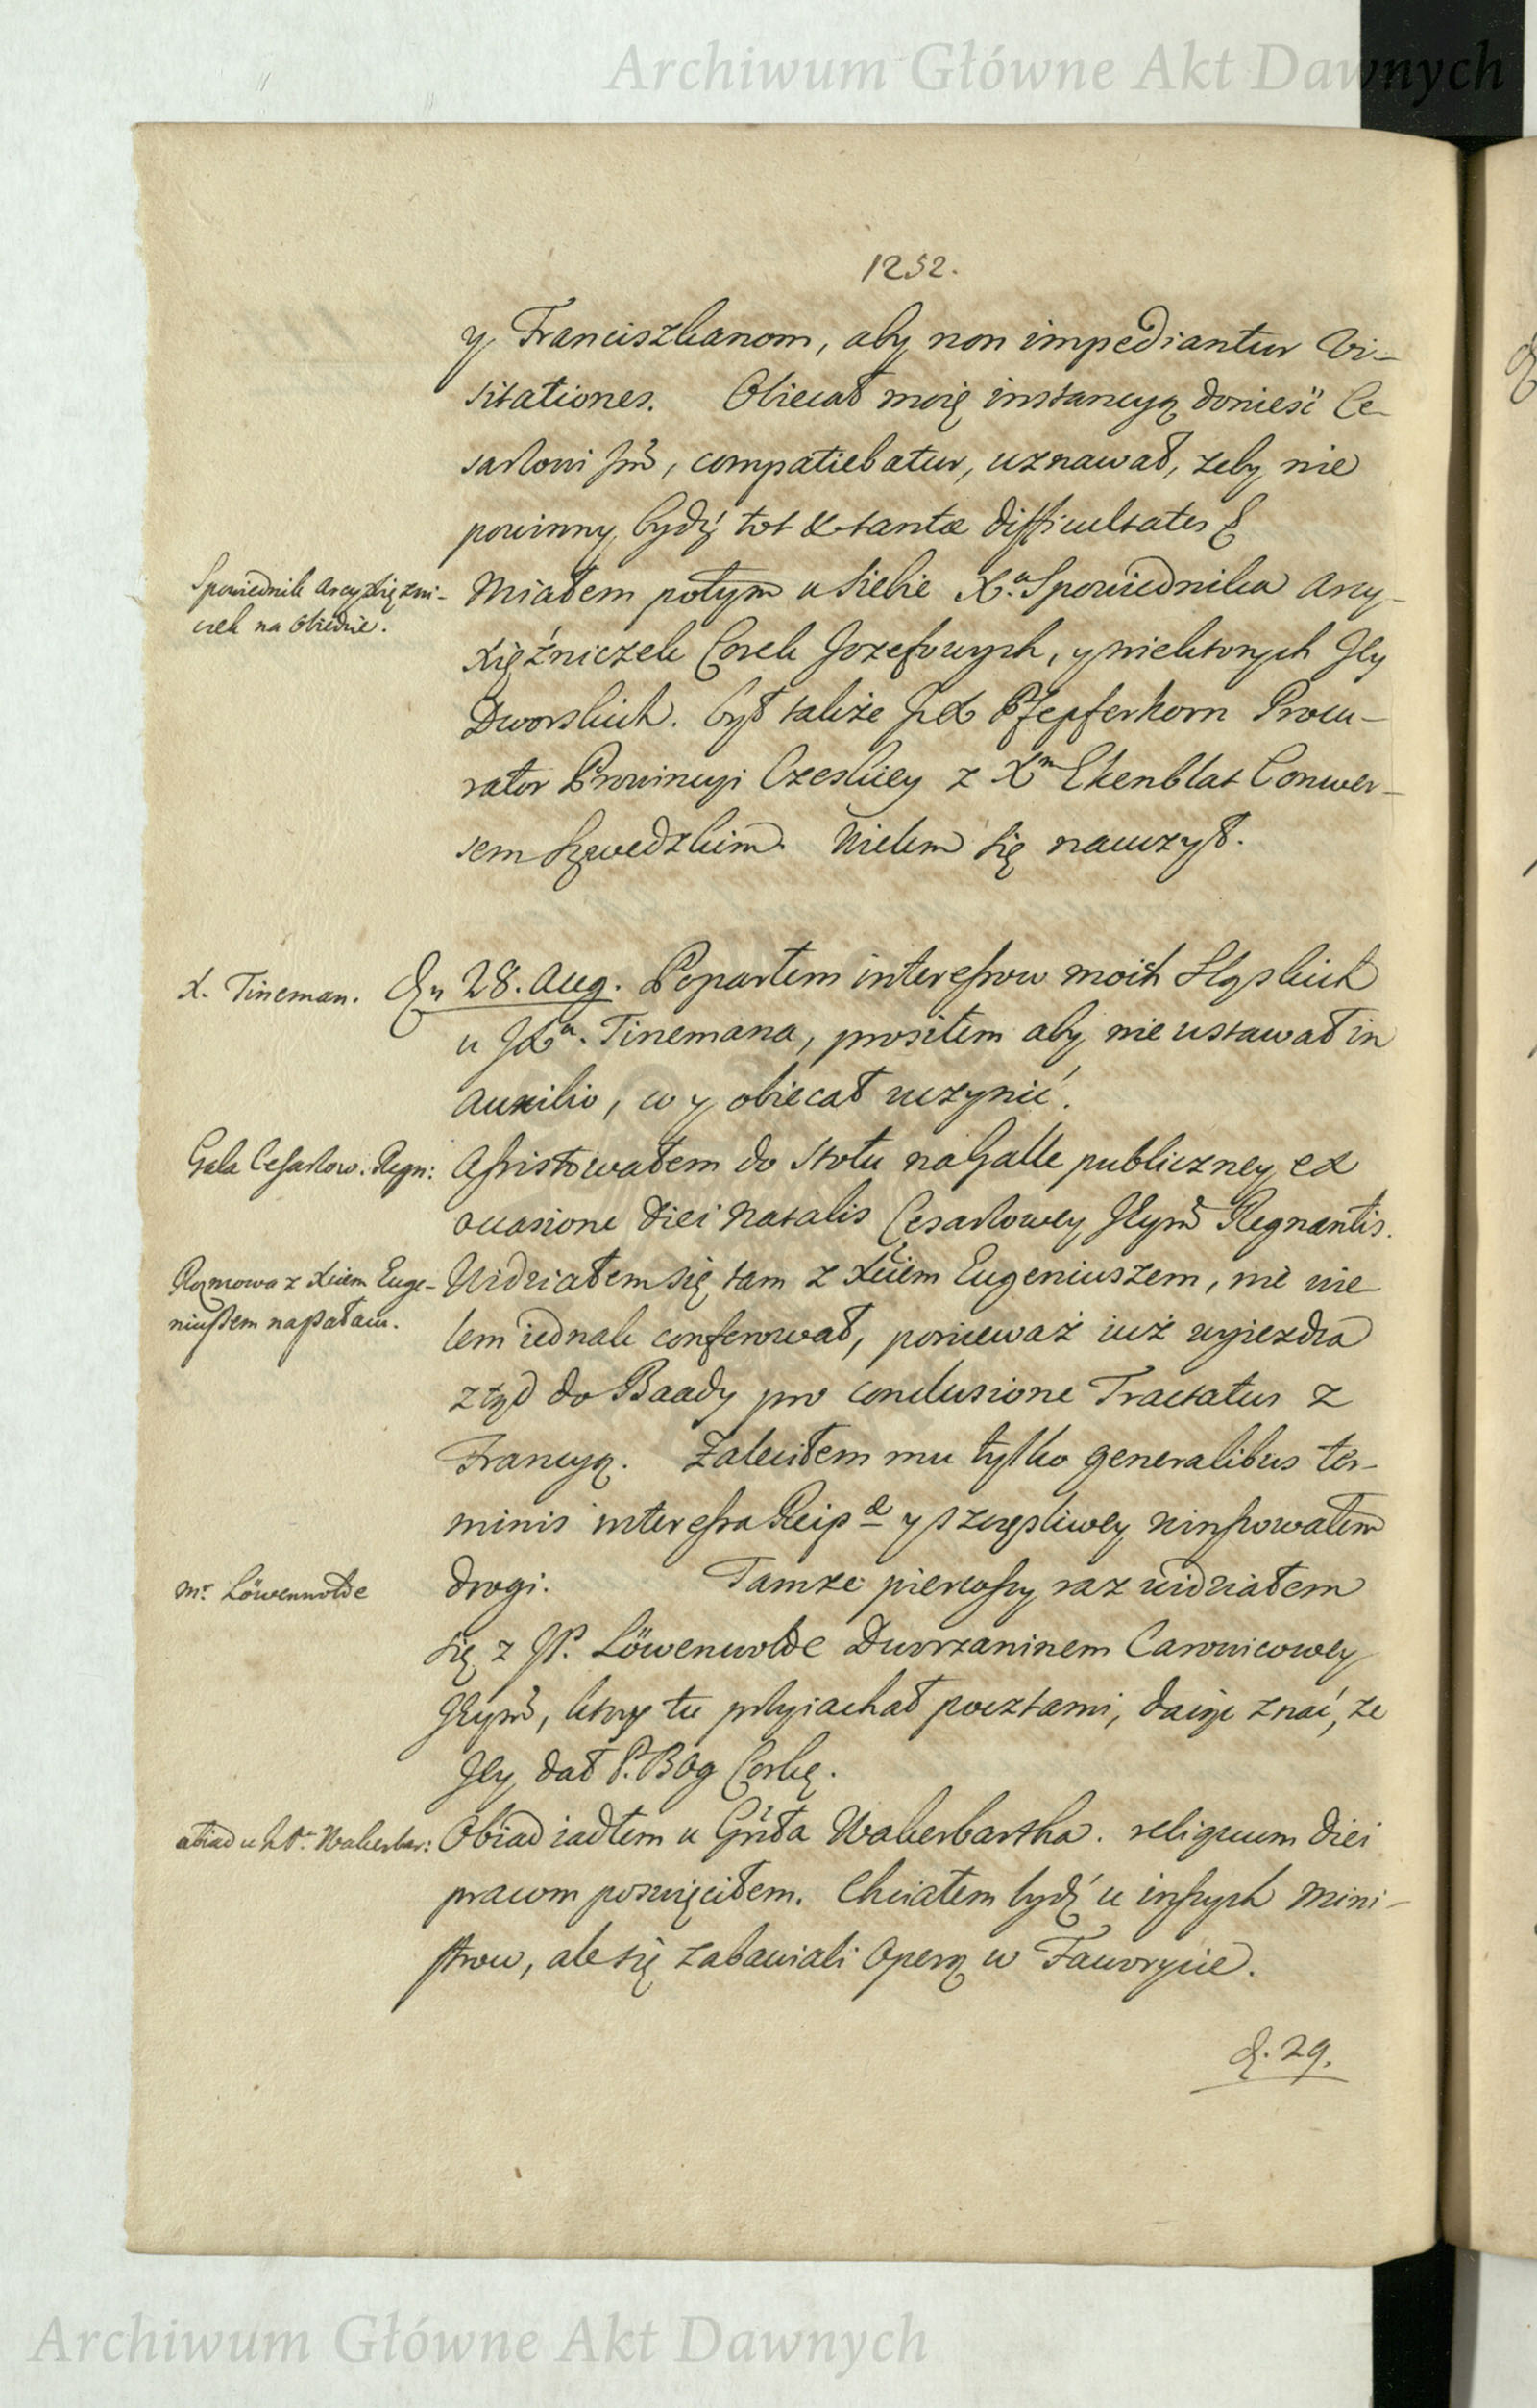 Archiwum Główne Akt Dawnych
1252.
y Franciszkanom, aby non impediantur Vi-
sitationes. Obiecał moię instancyą donieść Ce-
sarzowi Jm̃, compatiebatur, uznawał, zeby nie
powinny bydź tot & tantæ difficultates &
Spowiednik Arcyxiężni-
czek na Obiedzie.
Miałem potym u siebie Xa. Spowiednika Arcy-
xięźniczek Corek Jozefowych, y niektorych Jey
Dworskich. był także JX Pfepferkorn Procu-
rator Prowincyi Czeskiey z Xm Ekenblat Conwer-
sem Szwedzkim. Wielem się nauczył.
X. Tineman.
Dn 28. Aug. Poparłem interessow moich Sląskich
u JXa. Tinemana, prosiłem aby nie ustawał in
auxilio, co y obiecał uczynić.
Gala Cesarzow. Regn:
Assistowałem do stołu na Galle publiczney ex
occasione diei Natalis Cesarzowey Jeym̃ Regnantis.
Rozmowa z Xciem Euge-
niuszem na pałacu.
Widziałem się tam z Xciem Eugeniuszem, nie wie-
lem iednak conferował, poniewaź iuź wyiezdza
ztąd do Baady pro conclusione Tractatus z
Francyą. Zaleciłem mu tylko generalibus ter-
minis interessa Reipæ y szczęsliwey winszowałem
drogi. Tamze pierwszy raz widziałem
mr. Löwenwolde
się z JP. Löwenwolde Dworzaninem Carowicowey
Jeym̃, ktory tu przyiachał pocztami, daiąc znać, ze
Jey dał P. Bog Corkę.
obiad u hr. Wakerbar:
Obiad iadłem u Gr̃fa Wakerbartha. reliquum diei
pracom poswięciłem. Chciałem bydź u inszych Mini-
strow, ale się zabawiali Operą w Faworycie.
d. 29.
Archiwum Główne Akt Dawnych